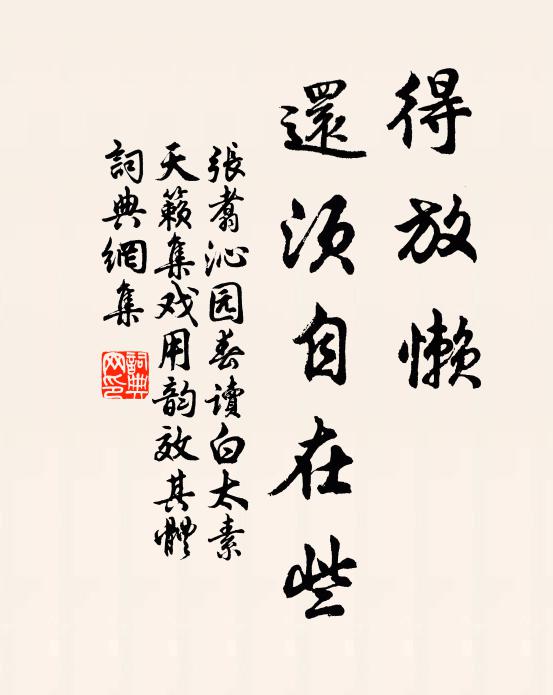 得放懒
還须自在些
張翥沁园春讀白太素
天籟集戏用韵效其體
詞典網集
詞典網印